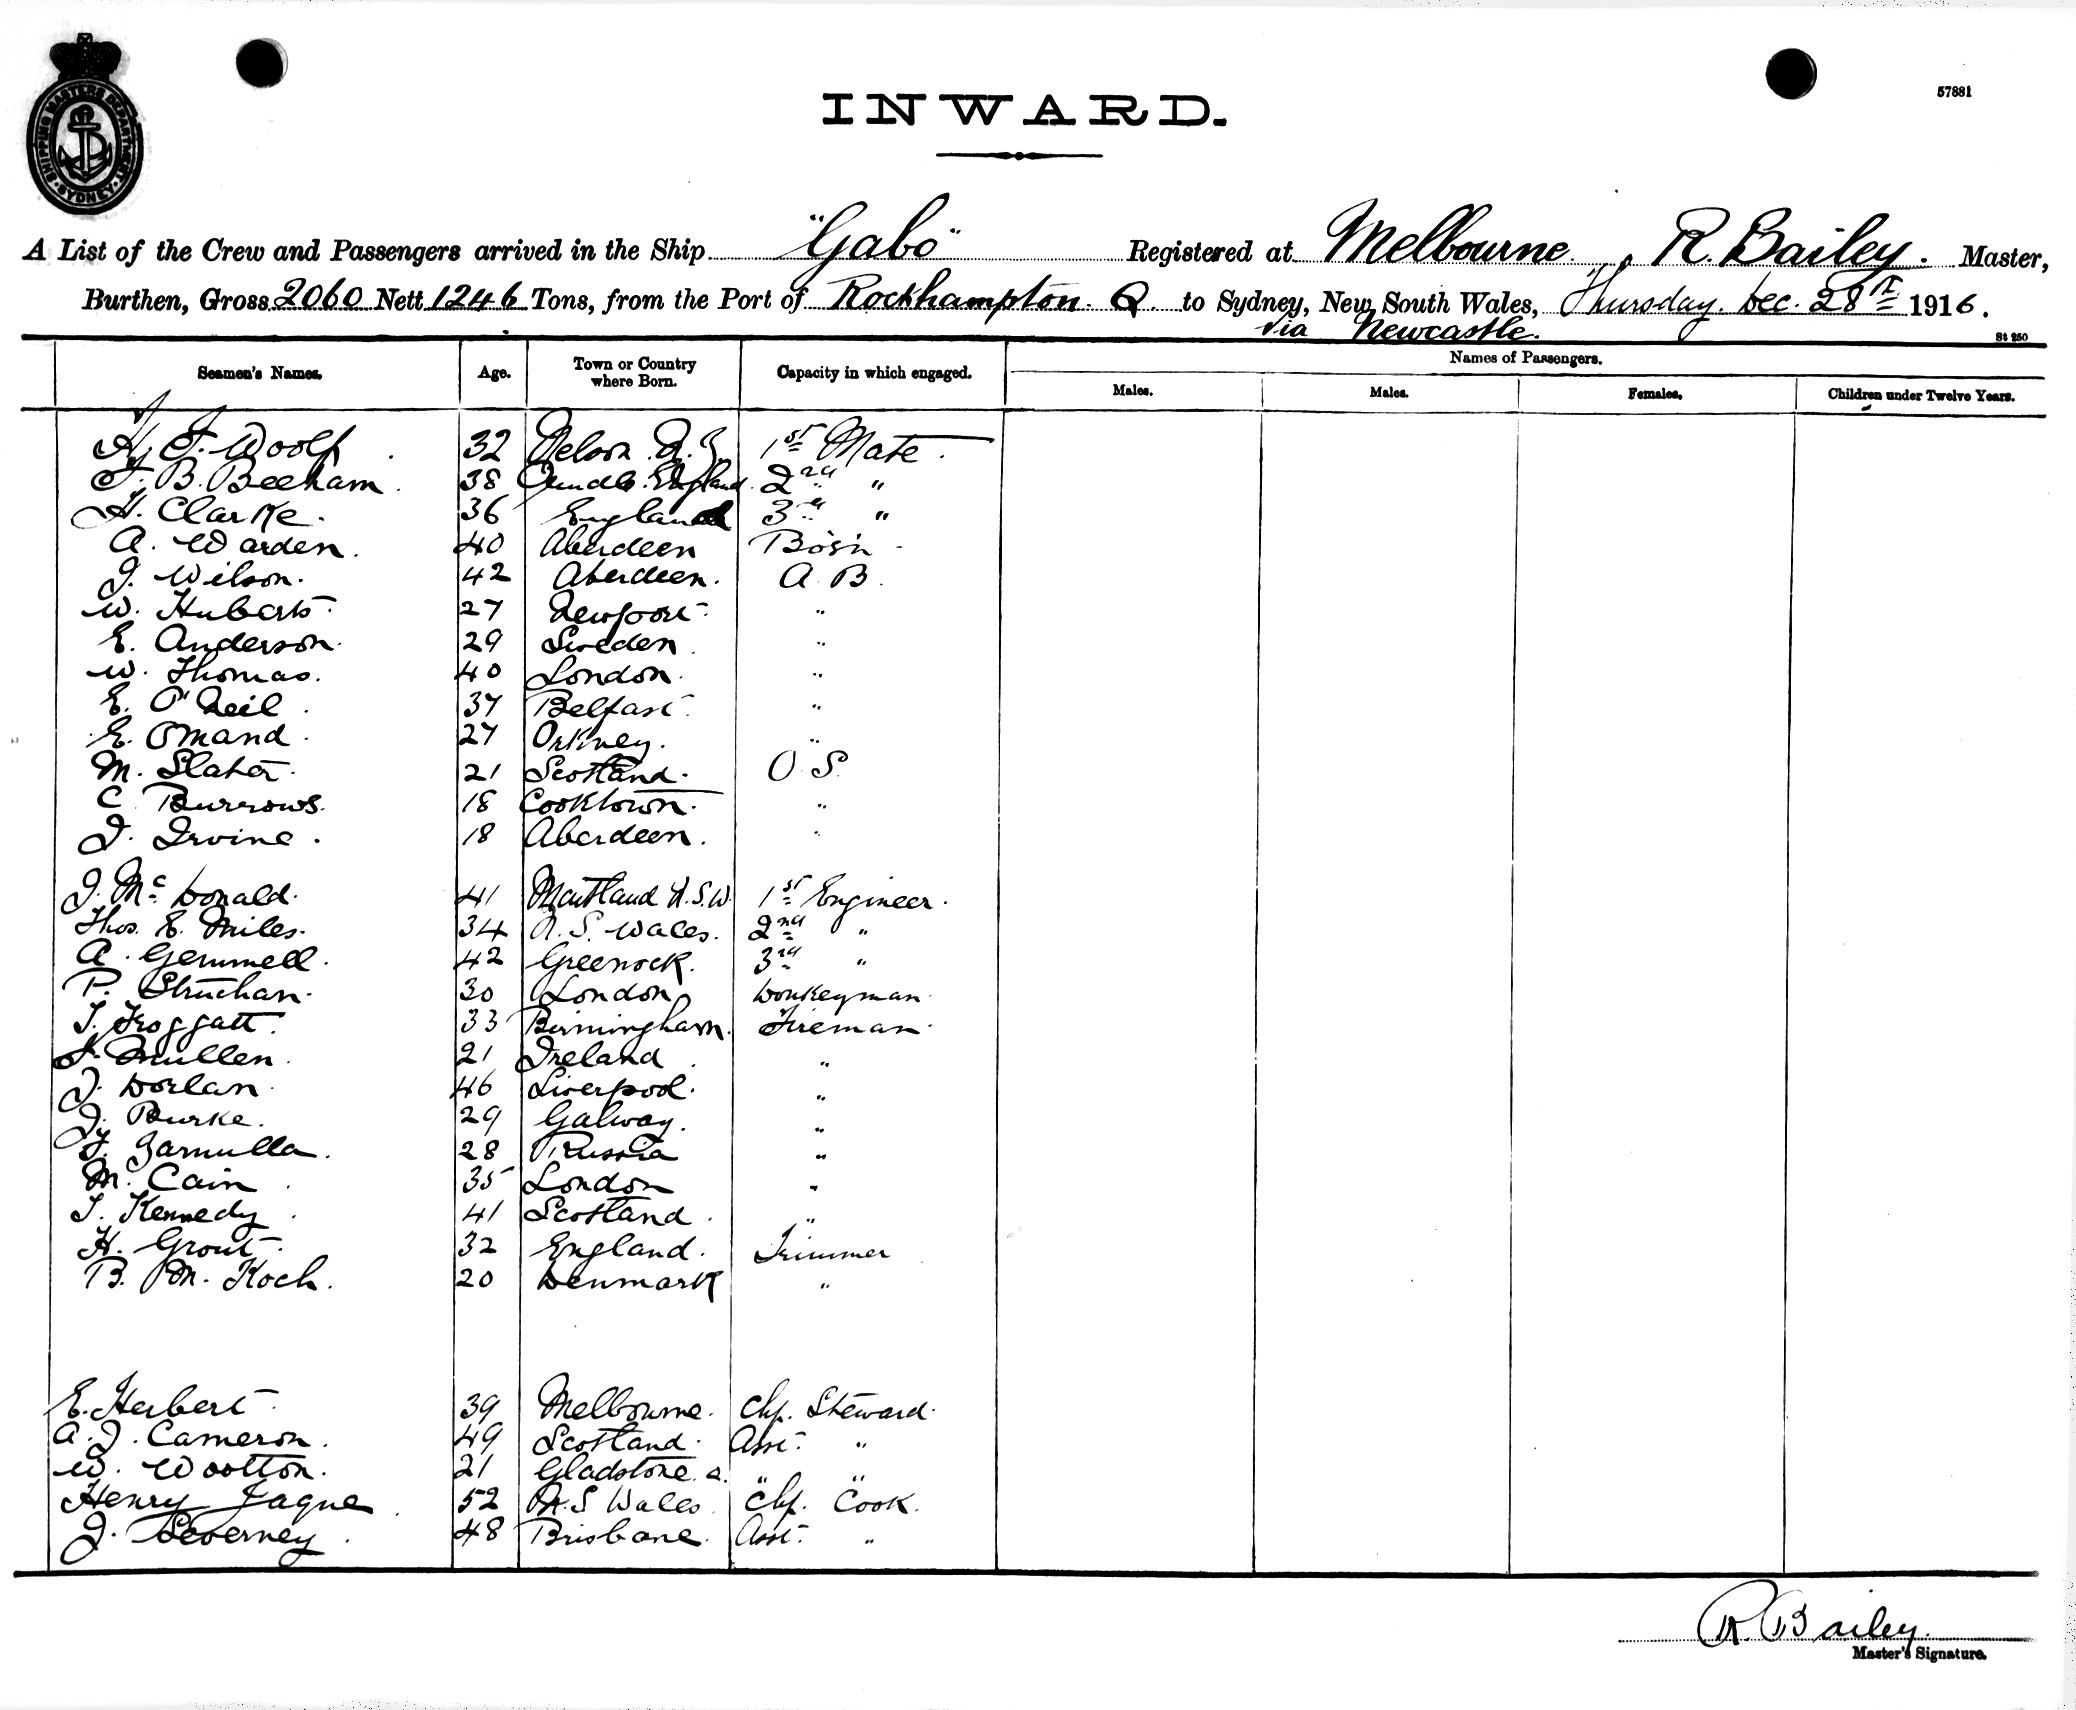 SHIPPING MASTERS DEPARTMENT
SYDNEY
57881
INWARD.
A List of the Crew and Passengers arrived in the Ship "Gabo" Registered at Melbourne, R. Bailey. Master,
Burthen, Gross 2060 Nett 1246 Tons, from the Port of Rockhampton. Q. to Sydney, New South Wales, Thursday. Dec. 28th 1916.
via Newcastle.
St 250
Seamen's Names. Age. Town or Country where Born. Capacity in which engaged. Names of Passengers.
Males. Males. Females. Children under Twelve Years.
F. Woolf 32 Nelson. N.Z. 1st Mate.
F. B. Beeham. 38 England. 2nd "
H. Clarke. 36 England 3rd "
A. Warden. 40 Aberdeen Bos'n
J. Wilson. 42 Aberdeen. A. B.
W. Huberts. 27 Newport. "
E. Anderson. 29 Sweden. "
W. Thomas. 40 London. "
E. O'Neil. 37 Belfast. "
E. Omand. 27 Orkney. "
M. Slater. 21 Scotland. O. S.
C. Burrows. 18 Cooktown. "
J. Irvine. 18 Aberdeen. "
J. McDonald. 41 Maitland N.S.W. 1st Engineer.
Thos. E. Miles. 34 N. S. Wales. 2nd "
A. Gemmell. 42 Greenock. 3rd "
P. Struchan. 30 London Donkeyman.
T. Froggatt. 33 Birmingham. Fireman.
J. Mullen. 21 Ireland. "
J. Dorlan. 46 Liverpool. "
J. Burke. 29 Galway. "
F. Zarmulla. 28 Russia "
M. Cain. 35 London "
T. Kennedy. 41 Scotland. "
H. Grout. 32 England. Trimmer
B. M. Koch. 20 Denmark "
E. Herbert. 39 Melbourne. Chf. Steward.
A. J. Cameron. 49 Scotland. Asst. "
W. Wootton. 21 Gladstone Q. " "
Henry Jaque. 52 N.S Wales. Chf. Cook.
J. Leverney. 48 Brisbane. Asst. "
R. Bailey.
Master's Signature.